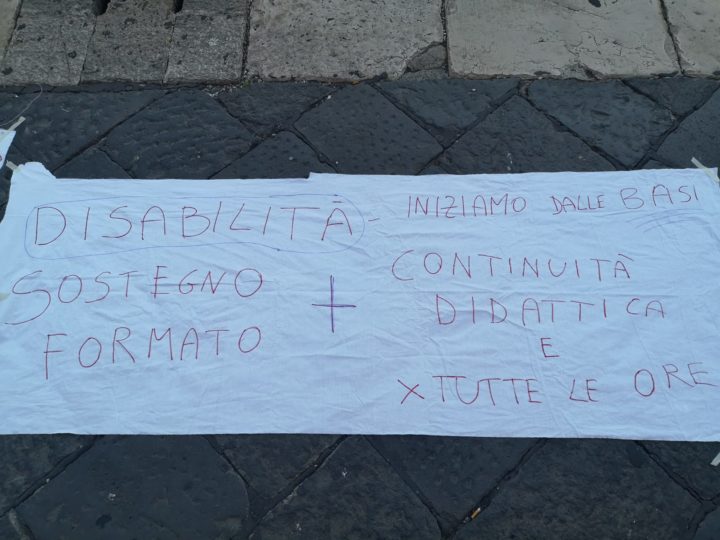 DISABILITÀ - INIZIAMO DALLE BASI
SOSTEGNO
FORMATO
+
CONTINUITÀ
DIDATTICA
E
X TUTTE LE ORE